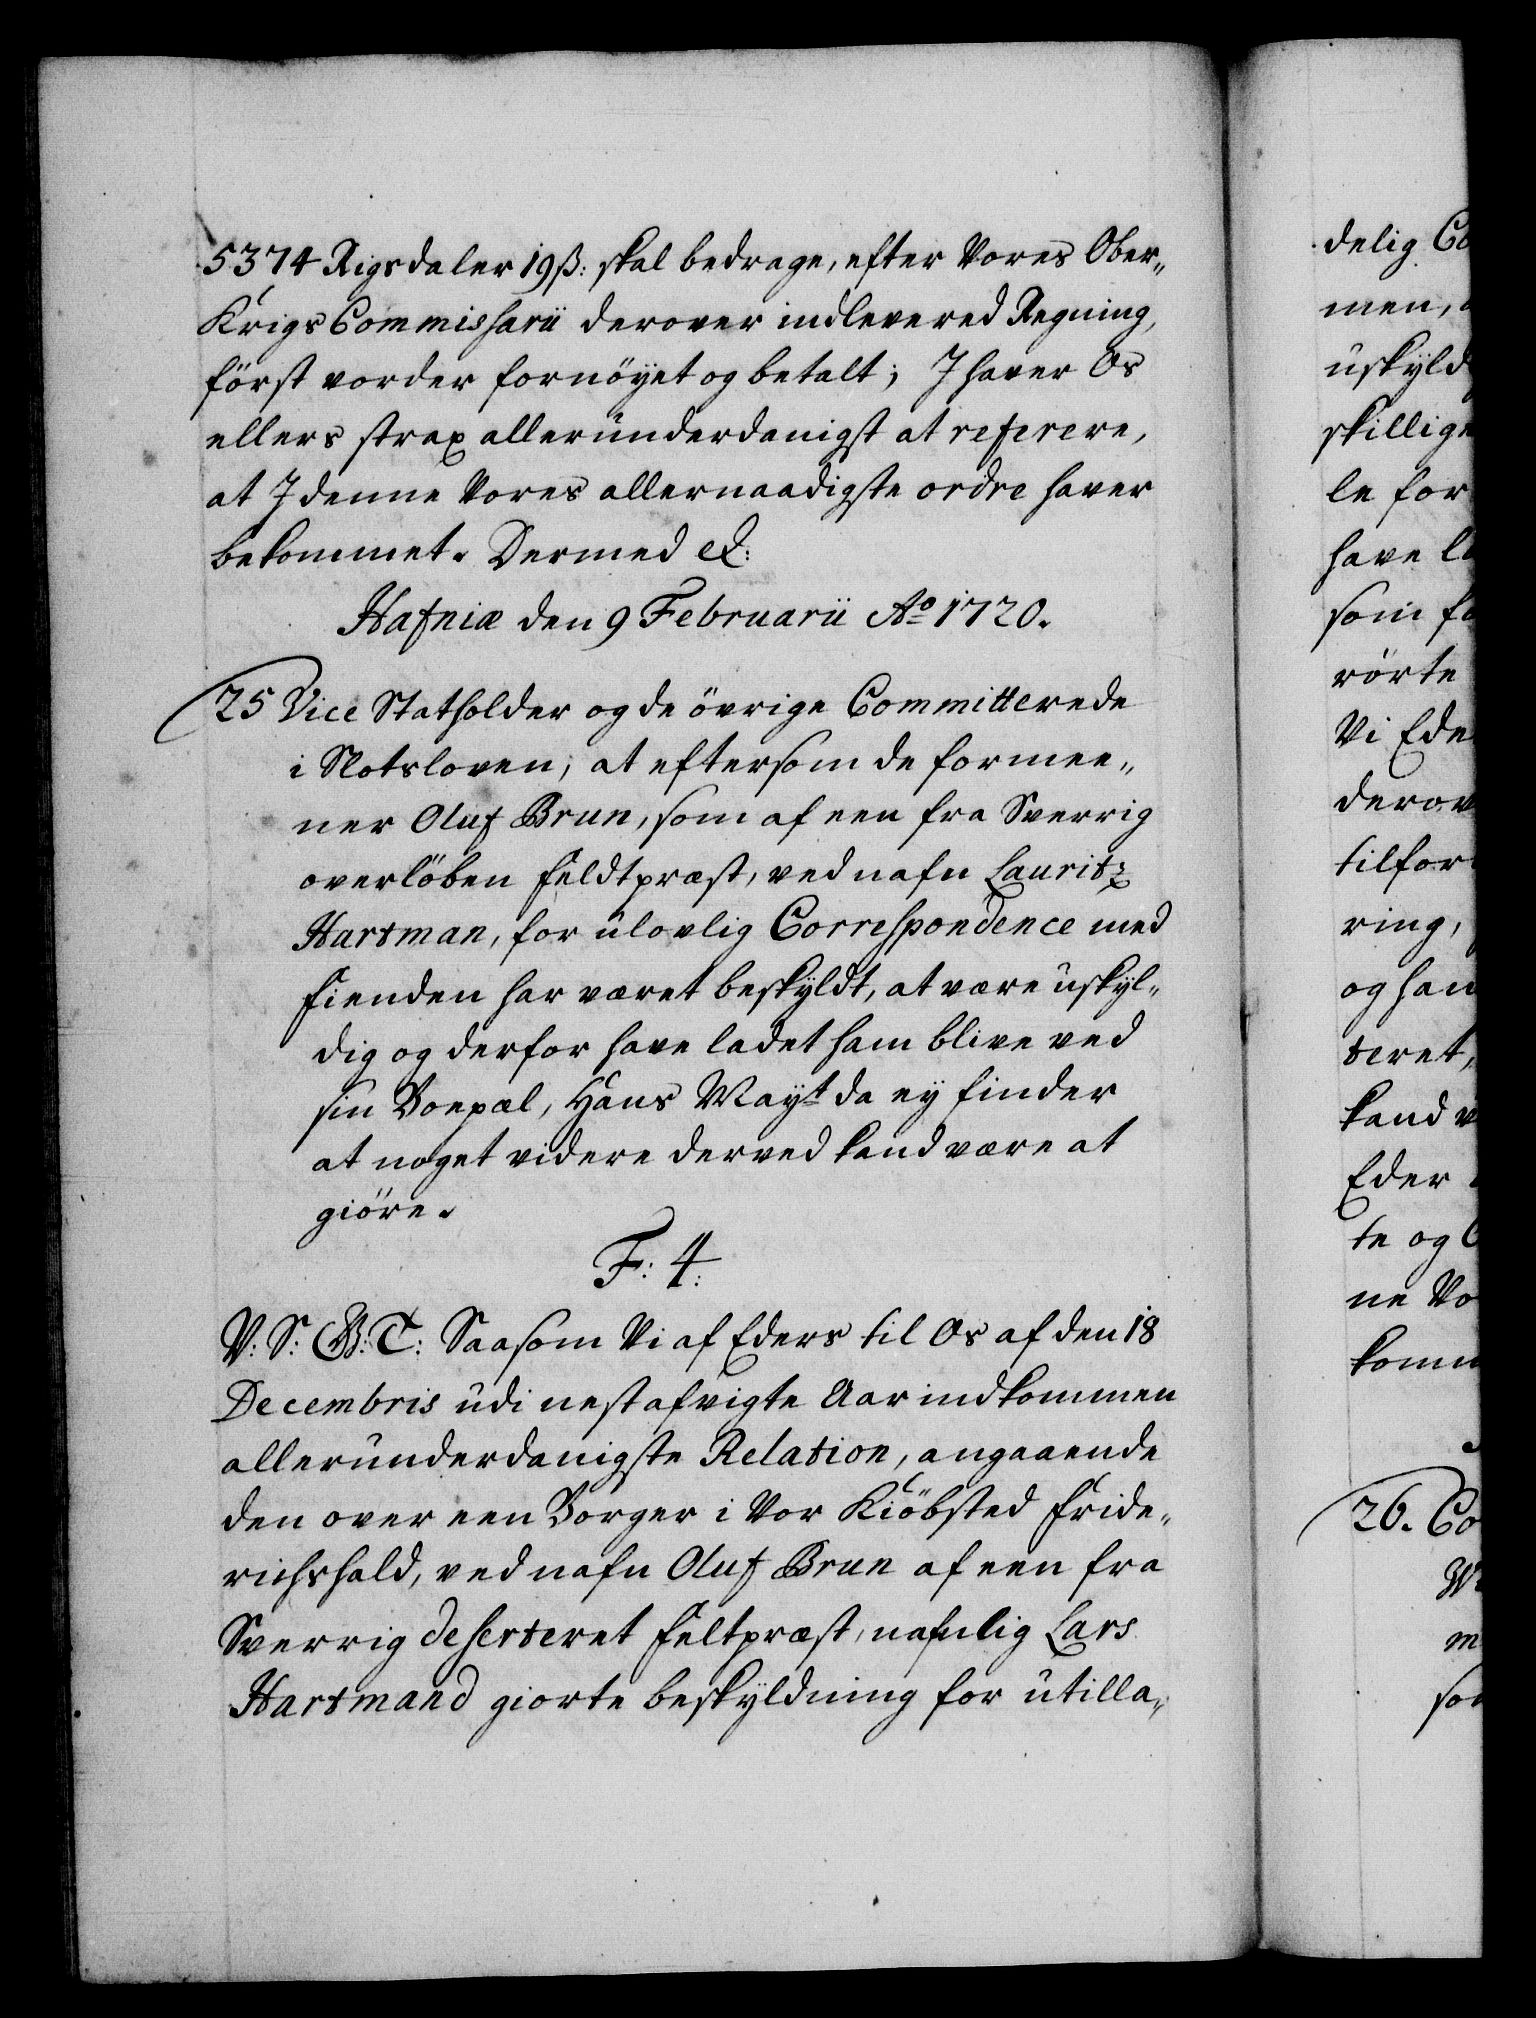 5374 Rigsdaler 19ß: skal bedrage, efter Vores Ober„
Krigs Commissarii derover indlevered Regning,
först vorder fornöyet og betalt; I haver Os
ellers strax allerunderdanigst at referere,
at I denne Vores allernaadigste ordre haver
bekommet. Dermed &:
Hafniæ den 9 Februarii Aº 1720.
25 Vice Statholder og de övrige Committerede
i Slotsloven; at eftersom de formee„
ner Oluf Brun, som af een fra Sverrig
overlöben Feldtpræst, ved nafn Lauritz
Hartman, for ulovlig Correspondence med
Fienden har været beskyldt, at være uskyl„
dig og derfor have ladet ham blive ved
sin Boepæl, Hans Mayt da ey finder
at noget videre derved kand være at
giöre.
F: 4:
V: S: G: T: Saasom Vi af Eders til Os af den 18
Decembris udi nest afvigte Aar indkommen
allerunderdanigste Relation, angaaende
den over een Borger i Vor Kiöbsted Fride„
richshald, ved nafn Oluf Brun af een fra
Sverrig deserteret Feltpræst, nafnlig Lars
Hartmand giorte beskyldning for utilla„
delig Co
men,
uskyld
skillige
le for
have
som
rörte
Vi Ede
derov
tilfor
ring,
og han
teret,
kand v
Eder
te og
ne Vo
komm
26. Co
m
som